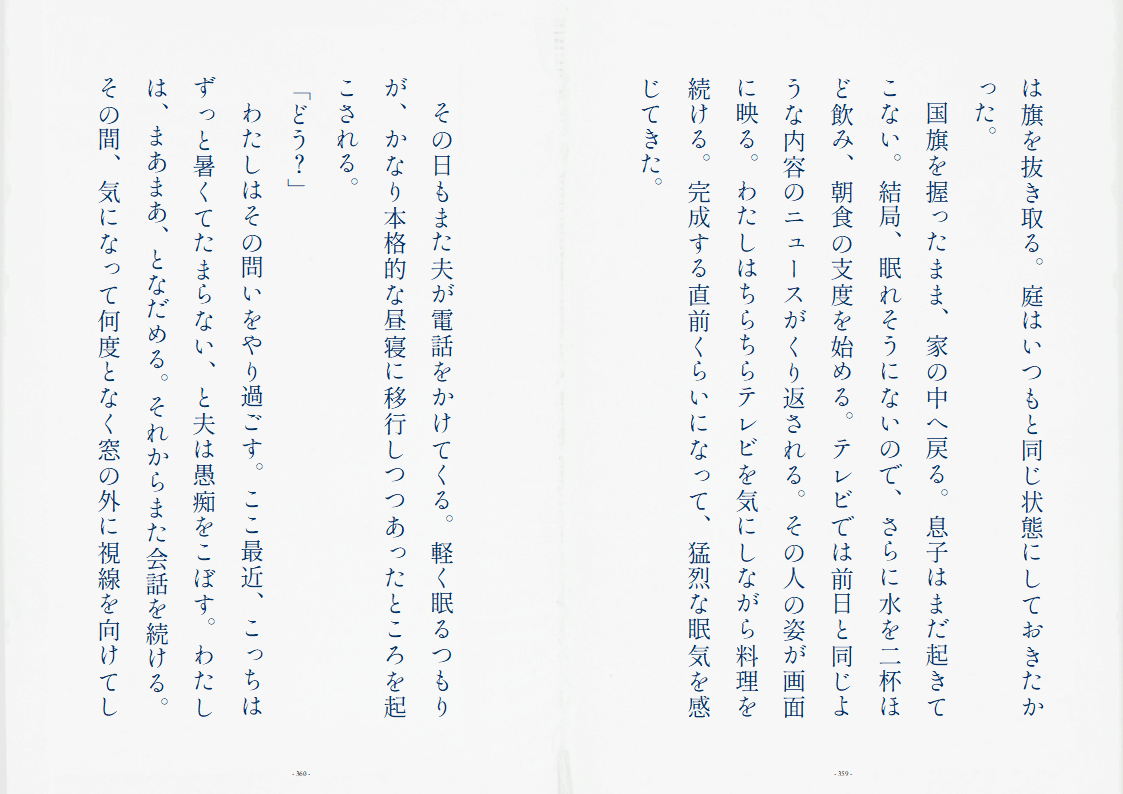 は旗を抜き取る。庭はいつもと同じ状態にしておきたか
った。
国旗を握ったまま、家の中へ戻る。息子はまだ起きて
こない。結局、眠れそうにないので、さらに水を二杯ほ
ど飲み、朝食の支度を始める。テレビでは前日と同じよ
うな内容のニュースがくり返される。その人の姿が画面
に映る。わたしはちらちらテレビを気にしながら料理を
続ける。完成する直前くらいになって、猛烈な眠気を感
じてきた。
- 359 -
その日もまた夫が電話をかけてくる。軽く眠るつもり
が、かなり本格的な昼寝に移行しつつあったところを起
こされる。
「どう？」
わたしはその問いをやり過ごす。ここ最近、こっちは
ずっと暑くてたまらない、と夫は愚痴をこぼす。わたし
は、まあまあ、となだめる。それからまた会話を続ける。
その間、気になって何度となく窓の外に視線を向けてし
- 360 -